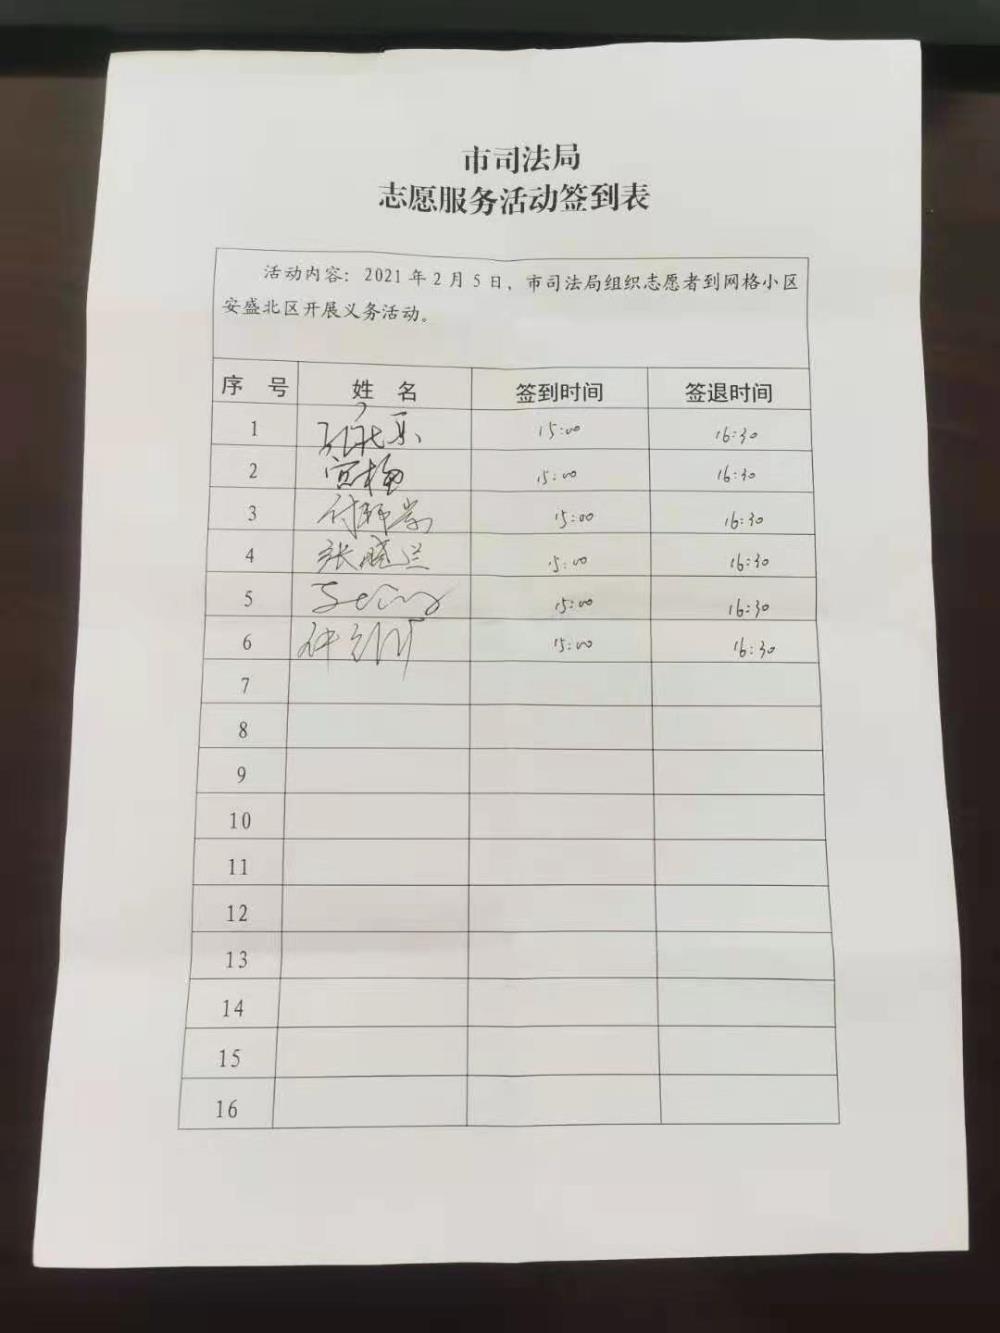 市司法局
志愿服务活动签到表
活动内容：2021年2月5日，市司法局组织志愿者到网格小区
安盛北区开展义务活动。
序 号 姓 名 签到时间 签退时间
1 15:00 16:30
2 宫梅 15:00 16:30
3 15:00 16:30
4 张晓兰 15:00 16:30
5 15:00 16:30
6 15:00 16:30
7
8
9
10
11
12
13
14
15
16